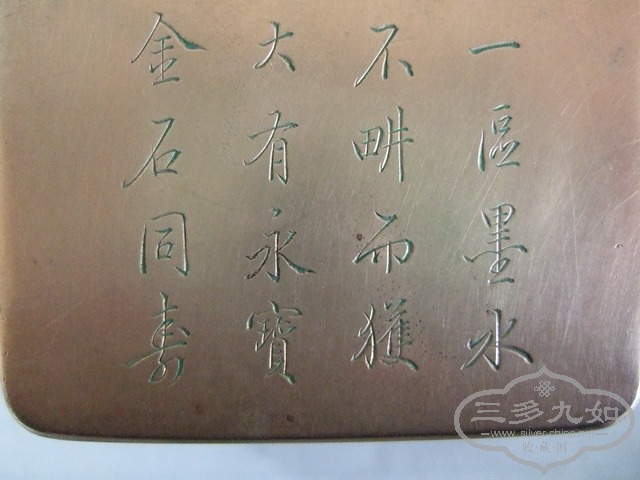 一區墨水
不畊而獲
大有永寶
金石同壽
三多九如
收藏网